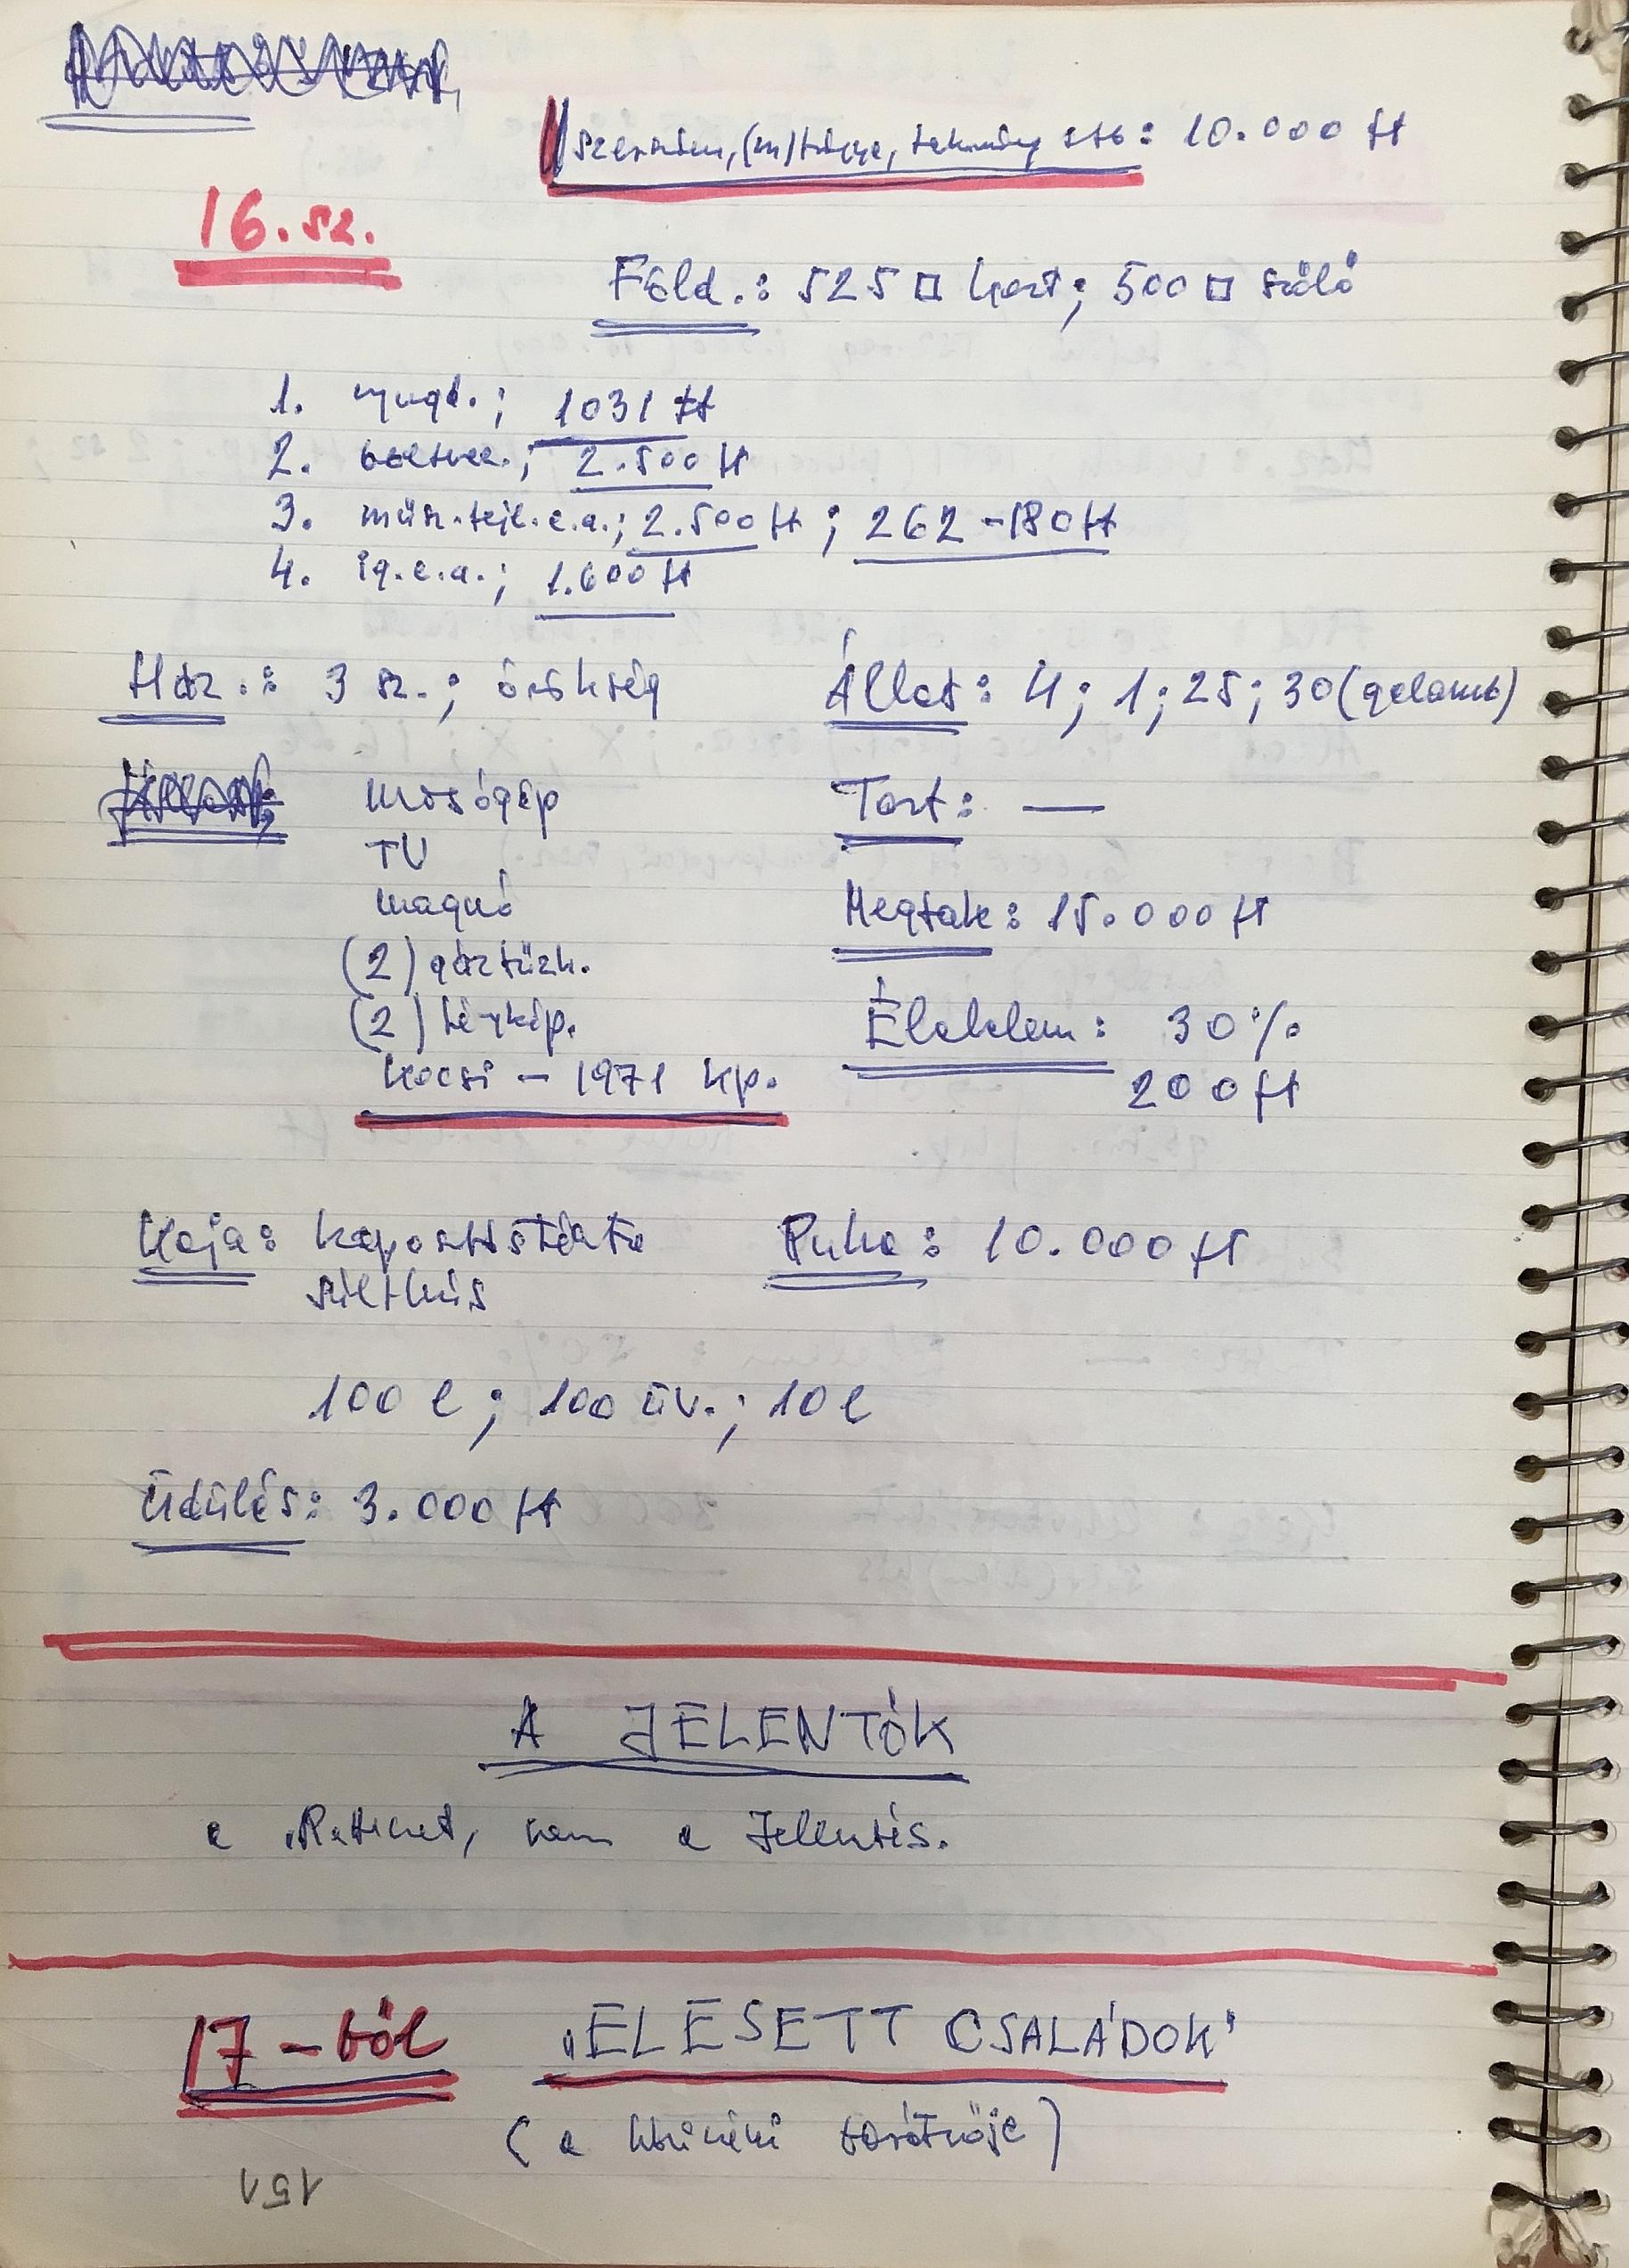 szerszám, (m)tágya, takarmány stb: 10.000 Ft
16. sz.
Föld.: 525 □ kert; 500 □ szőlő
1. nyugd.; 1031 Ft
2. boltvez.; 2.500 Ft
3. műsz.fejl.e.a.; 2.500 Ft; 262-180 Ft
4. ig.e.a.; 1.600 Ft
Ház.: 3 sz.; örökség
Állat: 4; 1; 25; 30 (galamb)
mosógép
TV
magnó
(2) gáztűzh.
(2) fénykép.
kocsi - 1971 kp.
Tart: —
Megtak: 15.000 Ft
Élelelem: 30%
200 Ft
Kaja: káposztástészta
sülthús
Ruha: 10.000 Ft
100 l; 100 üv.; 10 l
Üdülés: 3.000 Ft
A JELENTŐK
a nem a Jelentés.
17-ből „ELESETT CSALÁDOK"
(a barátnője)
151